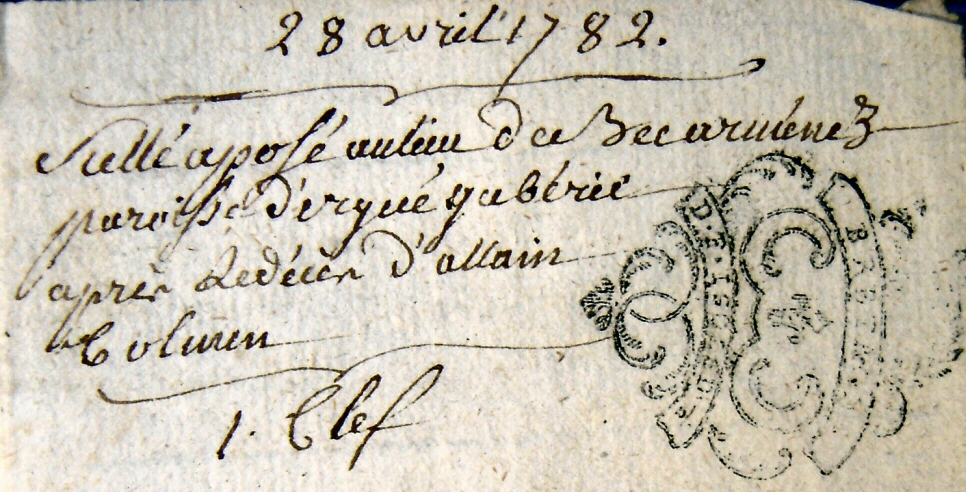 28 avril 1782.
Scellé aposé au lieu de Becarménez
paroisse d'ergué gabéric
après le décès d'allain
Colmen
1. Clef